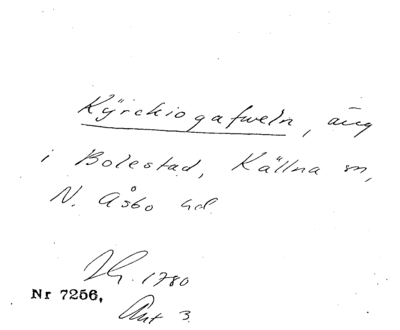 Kÿrckiogafweln, äng
i Bolestad, Källna sn,
N. Åsbo hd
1780
Nr 7256,
Ant 3.